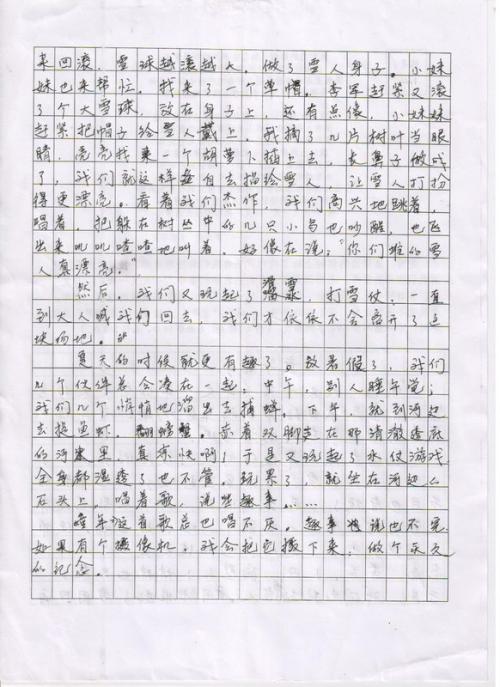 来回滚，雪球越滚越大。做了雪人身子。小妹
妹也来帮忙，找来了一个草帽。李军赶紧又滚
了个大雪球，放在身子上，还有点像，小妹妹
赶紧把帽子给雪人戴上，我摘了几片树叶当眼
睛，亮亮找来一个胡萝卜插上去，长鼻子做成
了，我们就这样各自去描绘雪人，让雪人打扮
得更漂亮。看着我们杰作，我们高兴地跳着，
唱着，把躲在树丛中的几只小鸟也吵醒，也飞
出来叽叽喳喳地叫着，好像在说："你们堆的雪
人真漂亮。"
然后，我们又玩起了滑雪，打雪仗，一直
到大人喊我们回去，我们才依依不舍离开了这
块场地。
夏天的时候就更有趣了。放暑假了，我们
几个伙伴总会凑在一起，中午，别人睡午觉；
我们几个悄悄地溜出去捕蝉。下午，就到河边
去捉鱼虾、螃蟹。赤着双脚走在那清澈透底
的河里，真凉快啊；于是又玩起了水仗游戏
全身都湿透了也不管。玩累了，就坐在河边
石头上，唱着歌，说些趣事……
童年这首歌总也唱不厌。趣事说也不完
如果有个摄像机，我会把它摄下来，做个永久
的记念。